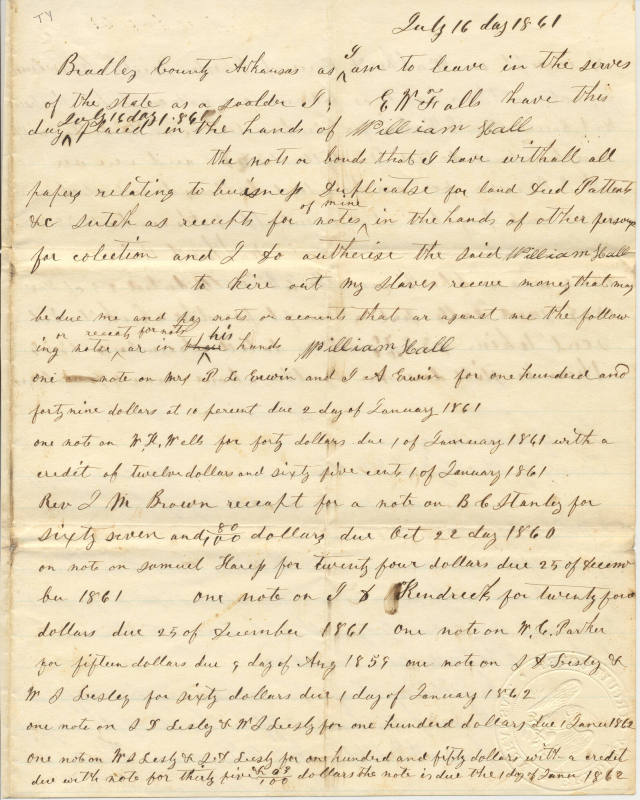 TY
July 16 day 1861
Bradley County Arkansas as I am to leave in the serves
of the state as a soolder I; E W Falls have this
day July 16 day 1861 placed in the hands of William Hall
the nots or bonds that I have withall all
papers relating to buisness Duplicatse for land deed Pattents
&c sutch as receipts for notes of mine in the hands of other persons
for colection and I do autherise the said William Hall
to hire out my slaves receve money that may
be due me and pay nots or acounts that ar against me the follow
ing notes or receits for nots ar in his hands William Hall
one note on Mrs P L Erwin and J A Erwin for one hundred and
forty nine dollars at 10 percent due 2 day of January 1861
one note on W. H. Wells for forty dollars due 1 of January 1861 with a
credit of twelve dollars and sixty five cents 1 of January 1861
Rev J M Brown receipt for a note on B C Stanley for
sixty seven and 80/100 dollars due Oct 22 day 1860
on note on Samuel Haress for twenty four dollars due 25 of decem
ber 1861 one note on J Kendreck for twenty four
dollars due 25 of december 1861 one note on W. C. Parker
for fifteen dollars due 9 day of Aug 1859 one note on Lesley &
W S Lesley for sixty dollars due 1 day of January 1862
one note on S D Lesly & W S Lesly for one hundred dollars due 1 Janur 1862
one note on W S Lesly & Lesly for one hundred and fifty dollars with a credit
due with note for thirty five & /100 dollars the note is due the 1 day of Janur 1862